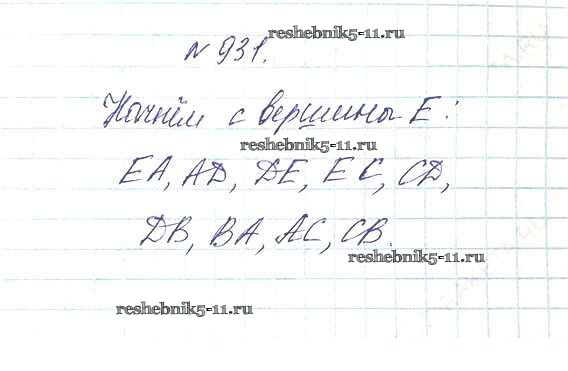 reshebnik5-11.ru
№ 931.
Начнём с вершины E:
reshebnik5-11.ru
EA, AD, DE, EC, CD,
DB, BA, AC, CB.
reshebnik5-11.ru
reshebnik5-11.ru